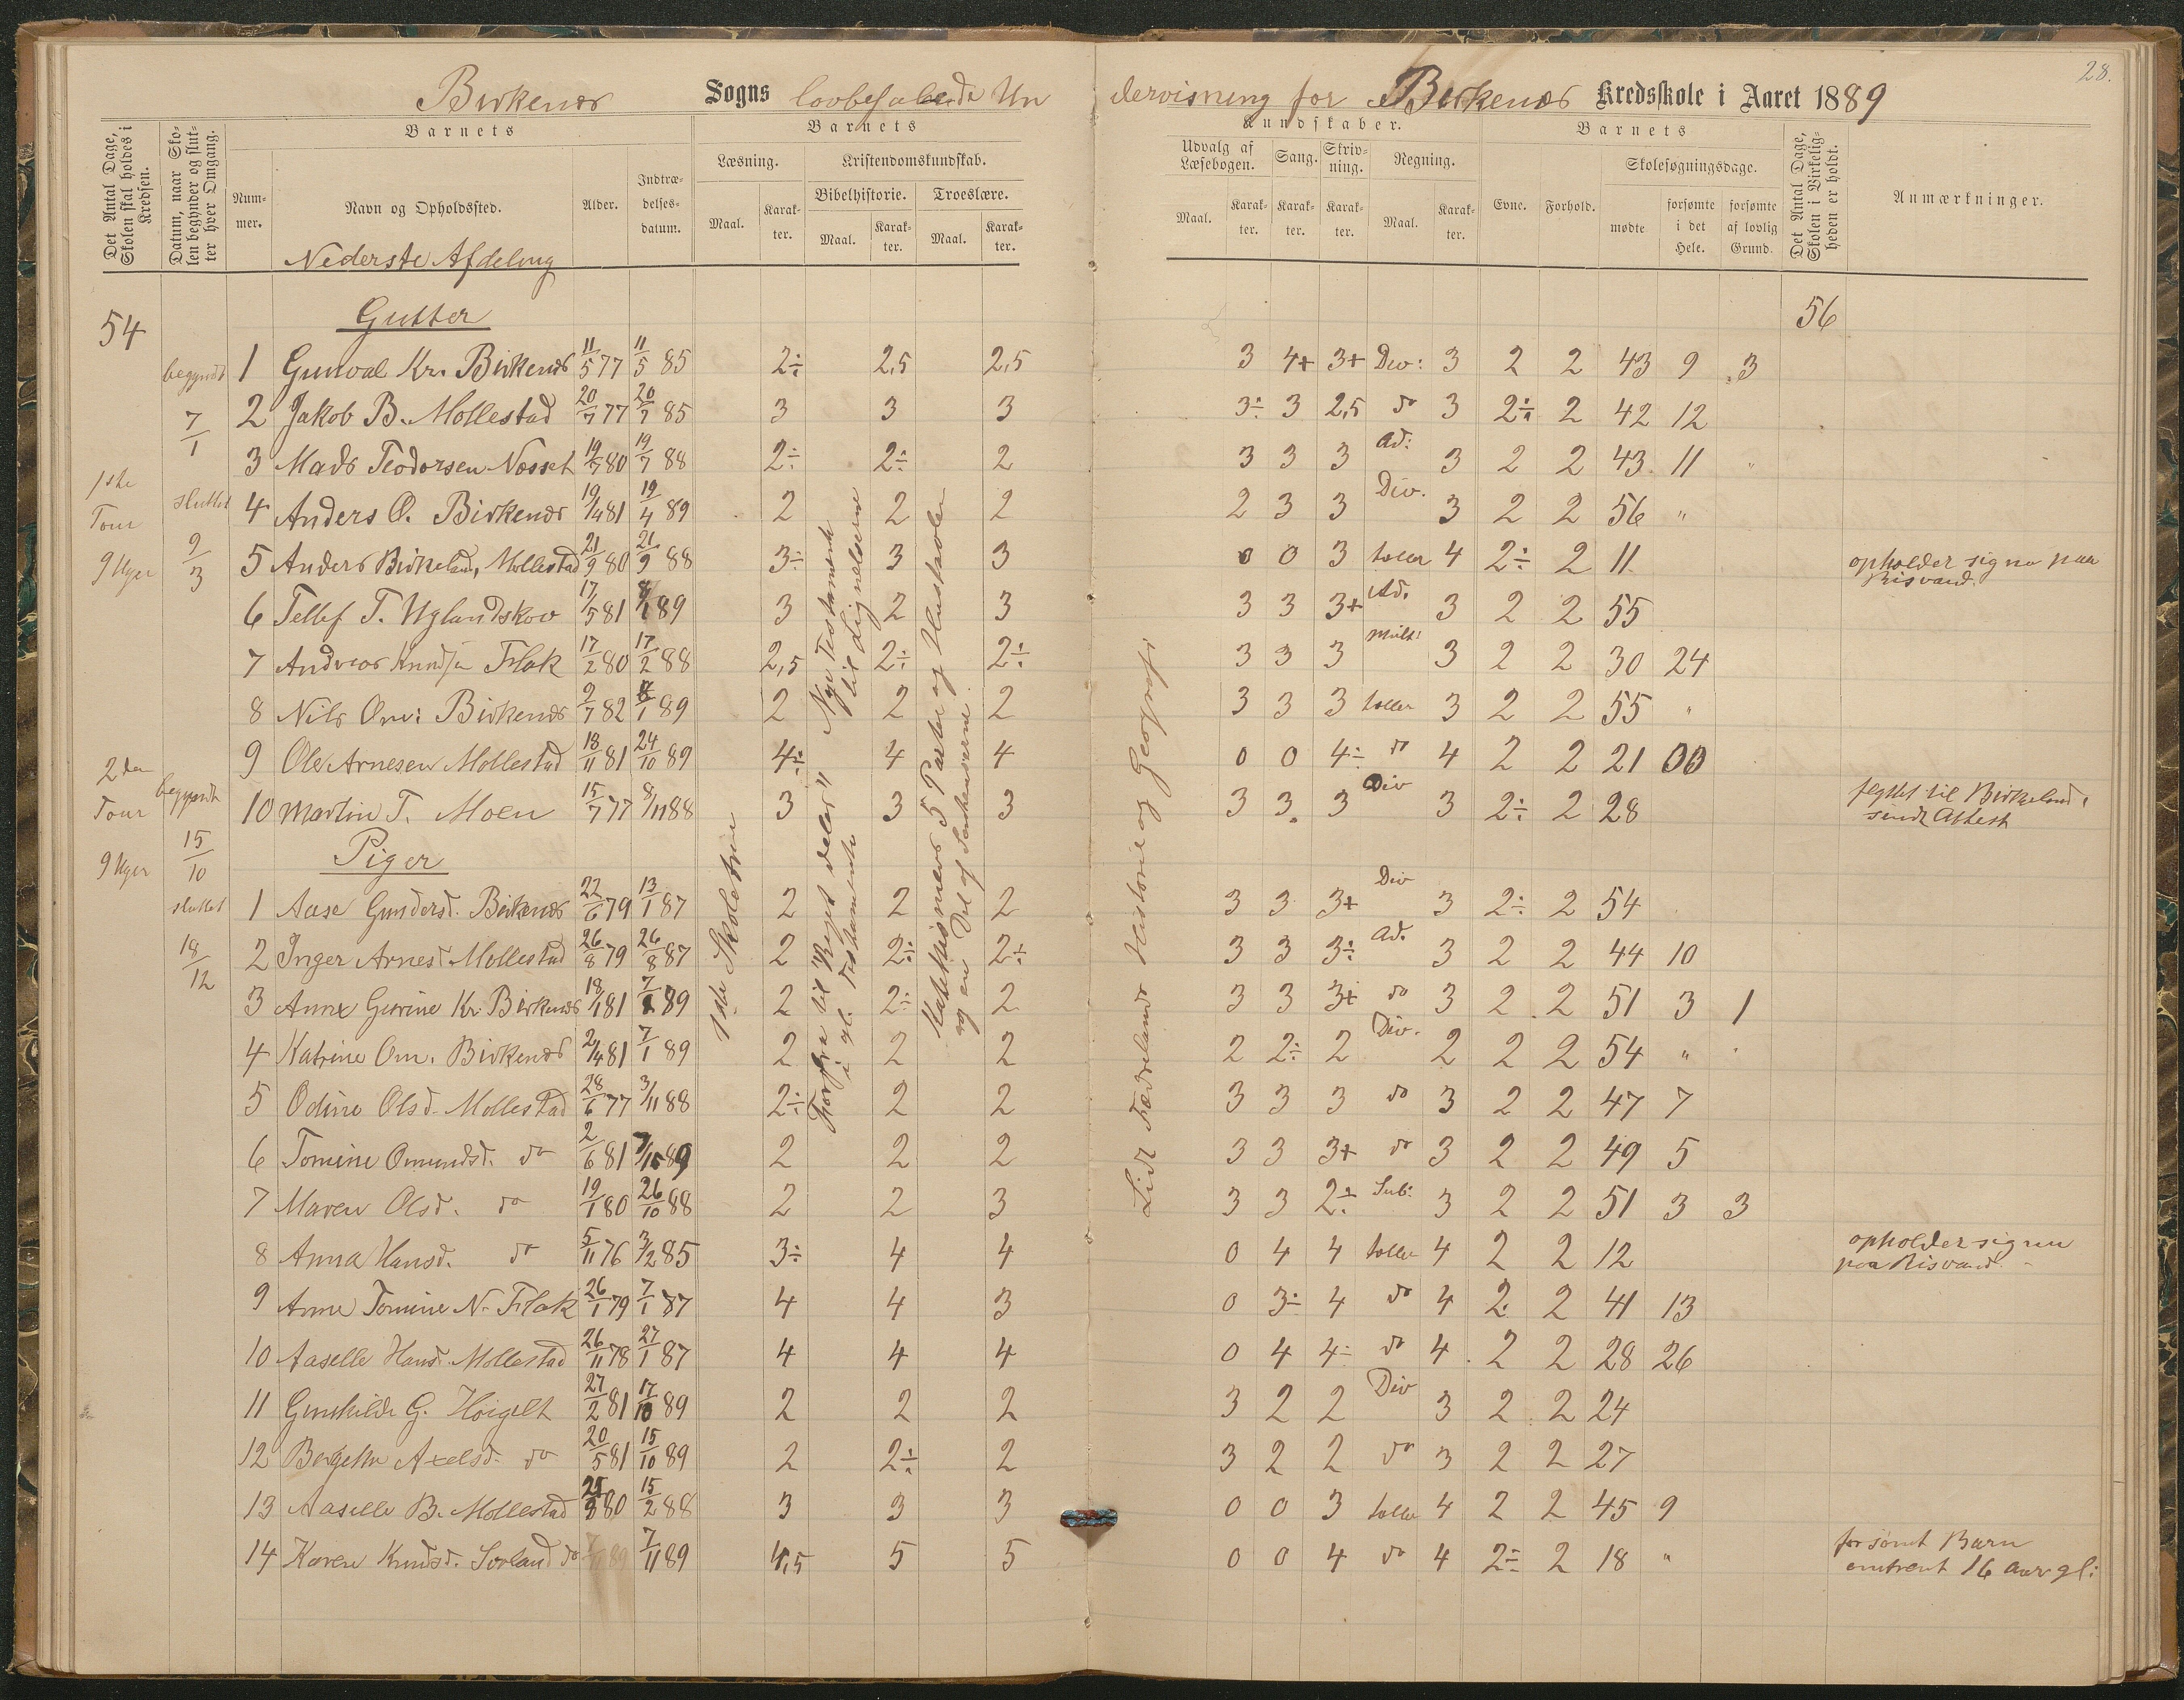 28.
Birkenes Sogns lovbefalende Undervisning for Birkenes Kredsskole i Aaret 1889
Det Antal Dage, Skolen skal holdes i Kredsen.
Datum, naar Skolen begynder og slutter hver Omgang.
Barnets
Nummer.
Navn og Opholdssted.
Alder.
Indtrædelsesdatum.
Barnets
Læsning.
Maal.
Karakter.
Kristendomskundskab.
Bibelhistorie.
Maal.
Karakter.
Troeslære.
Maal.
Karakter.
Kundskaber.
Udvalg af Læsebogen.
Maal.
Karakter.
Sang.
Karakter.
Skrivning.
Karakter.
Regning.
Maal.
Karakter.
Barnets
Evne.
Forhold.
Skolesøgningsdage.
mødte
forsømte i det Hele.
forsømte af lovlig Grund.
Det Antal Dage, Skolen i Virkeligheden er holdt.
Anmærkninger.
Nederste Afdeling
54 Gutter 56
1 Gunval Kr. Birkenes 11/5 77 11/5 85 2÷ 2,5 2,5 3 4+ 3+ Div: 3 2 2 43 9 3
2 Jakob B. Mollestad 20/7 77 20/7 85 3 3 3 3÷ 3 2,5 do 3 2÷ 2 42 12
3 Mads Teodorsen Nosset 19/7 80 19/7 88 2÷ 2÷ 2 3 3 3 Ad: 3 2 2 43 11 "
4 Anders O. Birkenes 19/4 81 19/4 89 2 2 2 2 3 3 Div. 3 2 2 56 "
5 Anders Birkeland, Mollestad 21/9 80 21/9 88 3÷ 3 3 0 0 3 tæller 4 2÷ 2 11 opholder sig nu paa
Risvand.
6 Tellef T. Uglandskov 17/5 81 89 3 2 3 3 3 3+ Ad. 3 2 2 55
7 Andreas Knudsen Flak 17/2 80 17/2 88 2,5 2÷ 2÷ 3 3 3 Mult: 3 2 2 30 24
8 Nils Om: Birkenes 9/7 82 89 2 2 2 3 3 3 tæller 3 2 2 55 "
9 Ole Arnesen Mollestad 18/11 81 24/10 89 4÷ 4 4 0 0 4÷ do 4 2 2 21 00
10 Martin T. Moen 15/7 77 8/11 88 3 3 3 3 3 3 Div 3 2÷ 2 28 flyttet til Birkeland,
sendt Attest
Piger
1 Aase Gundersd. Birkenes 22/6 79 13/1 87 2 2 2 3 3 3+ Div 3 2÷ 2 54
2 Inger Arnesd. Mollestad 26/8 79 26/8 87 2 2÷ 2÷ 3 3 3÷ Ad. 3 2 2 44 10
3 Anne Gurine Kr. Birkenes 18/1 81 89 2 2÷ 2 3 3 3+ do 3 2 2 51 3 1
4 Katrine Om. Birkenes 2/4 81 7/1 89 2 2 2 2 2÷ 2 Div. 2 2 2 54 "
5 Odine Olsd. Mollestad 28/6 77 3/11 88 2÷ 2 2 3 3 3 do 3 2 2 47 7
6 Tomine Omundsd. do 2/6 81 89 2 2 2 3 3 3+ do 3 2 2 49 5
7 Maren Olsd. do 19/1 80 26/10 88 2 2 3 3 3 2÷ Sub: 3 2 2 51 3 3
8 Anna Hansd. do 5/11 76 3/2 85 3÷ 4 4 0 4 4 tæller 4 2 2 12 opholder sig nu
paa Risvand.
9 Anne Tomine N. Flak 26/1 79 7/1 87 4 4 3 0 3÷ 4 do 4 2 2 41 13
10 Aaselle Hansd. Mollestad 26/11 78 27/1 87 4 4 4 0 4 4÷ do 4 2 2 28 26
11 Gunhilde G. Høigelt 27/2 81 17/10 89 2 2 2 3 2 2 Div 3 2 2 24
12 Bergette Axelsd. do 20/5 81 15/10 89 2 2÷ 2 3 2 2 do 3 2 2 27
13 Aaselle B. Mollestad 80 15/2 88 3 3 3 0 0 3 tæller 4 2 2 45 9
14 Karen Knudsd. Sorland do 7/11 89 4,5 5 5 0 0 4 do 4 2÷ 2 18 " forsømt Barn
omtrent 16 Aar gl:
begyndt
7/1
1ste
Tour
9 Uger
sluttet
9/3
2den
Tour
9 Uger
begyndt
15/10
sluttet
18/12
1ste Skoletrin
Forfra til "Riget deles" Nye Testamente
i gl. Testamente til Lignelserne
Katekismens 5 Parter og Hustavlen
og en Del af Forklaringerne.
Lidt Fædrelands Historie og Geografi